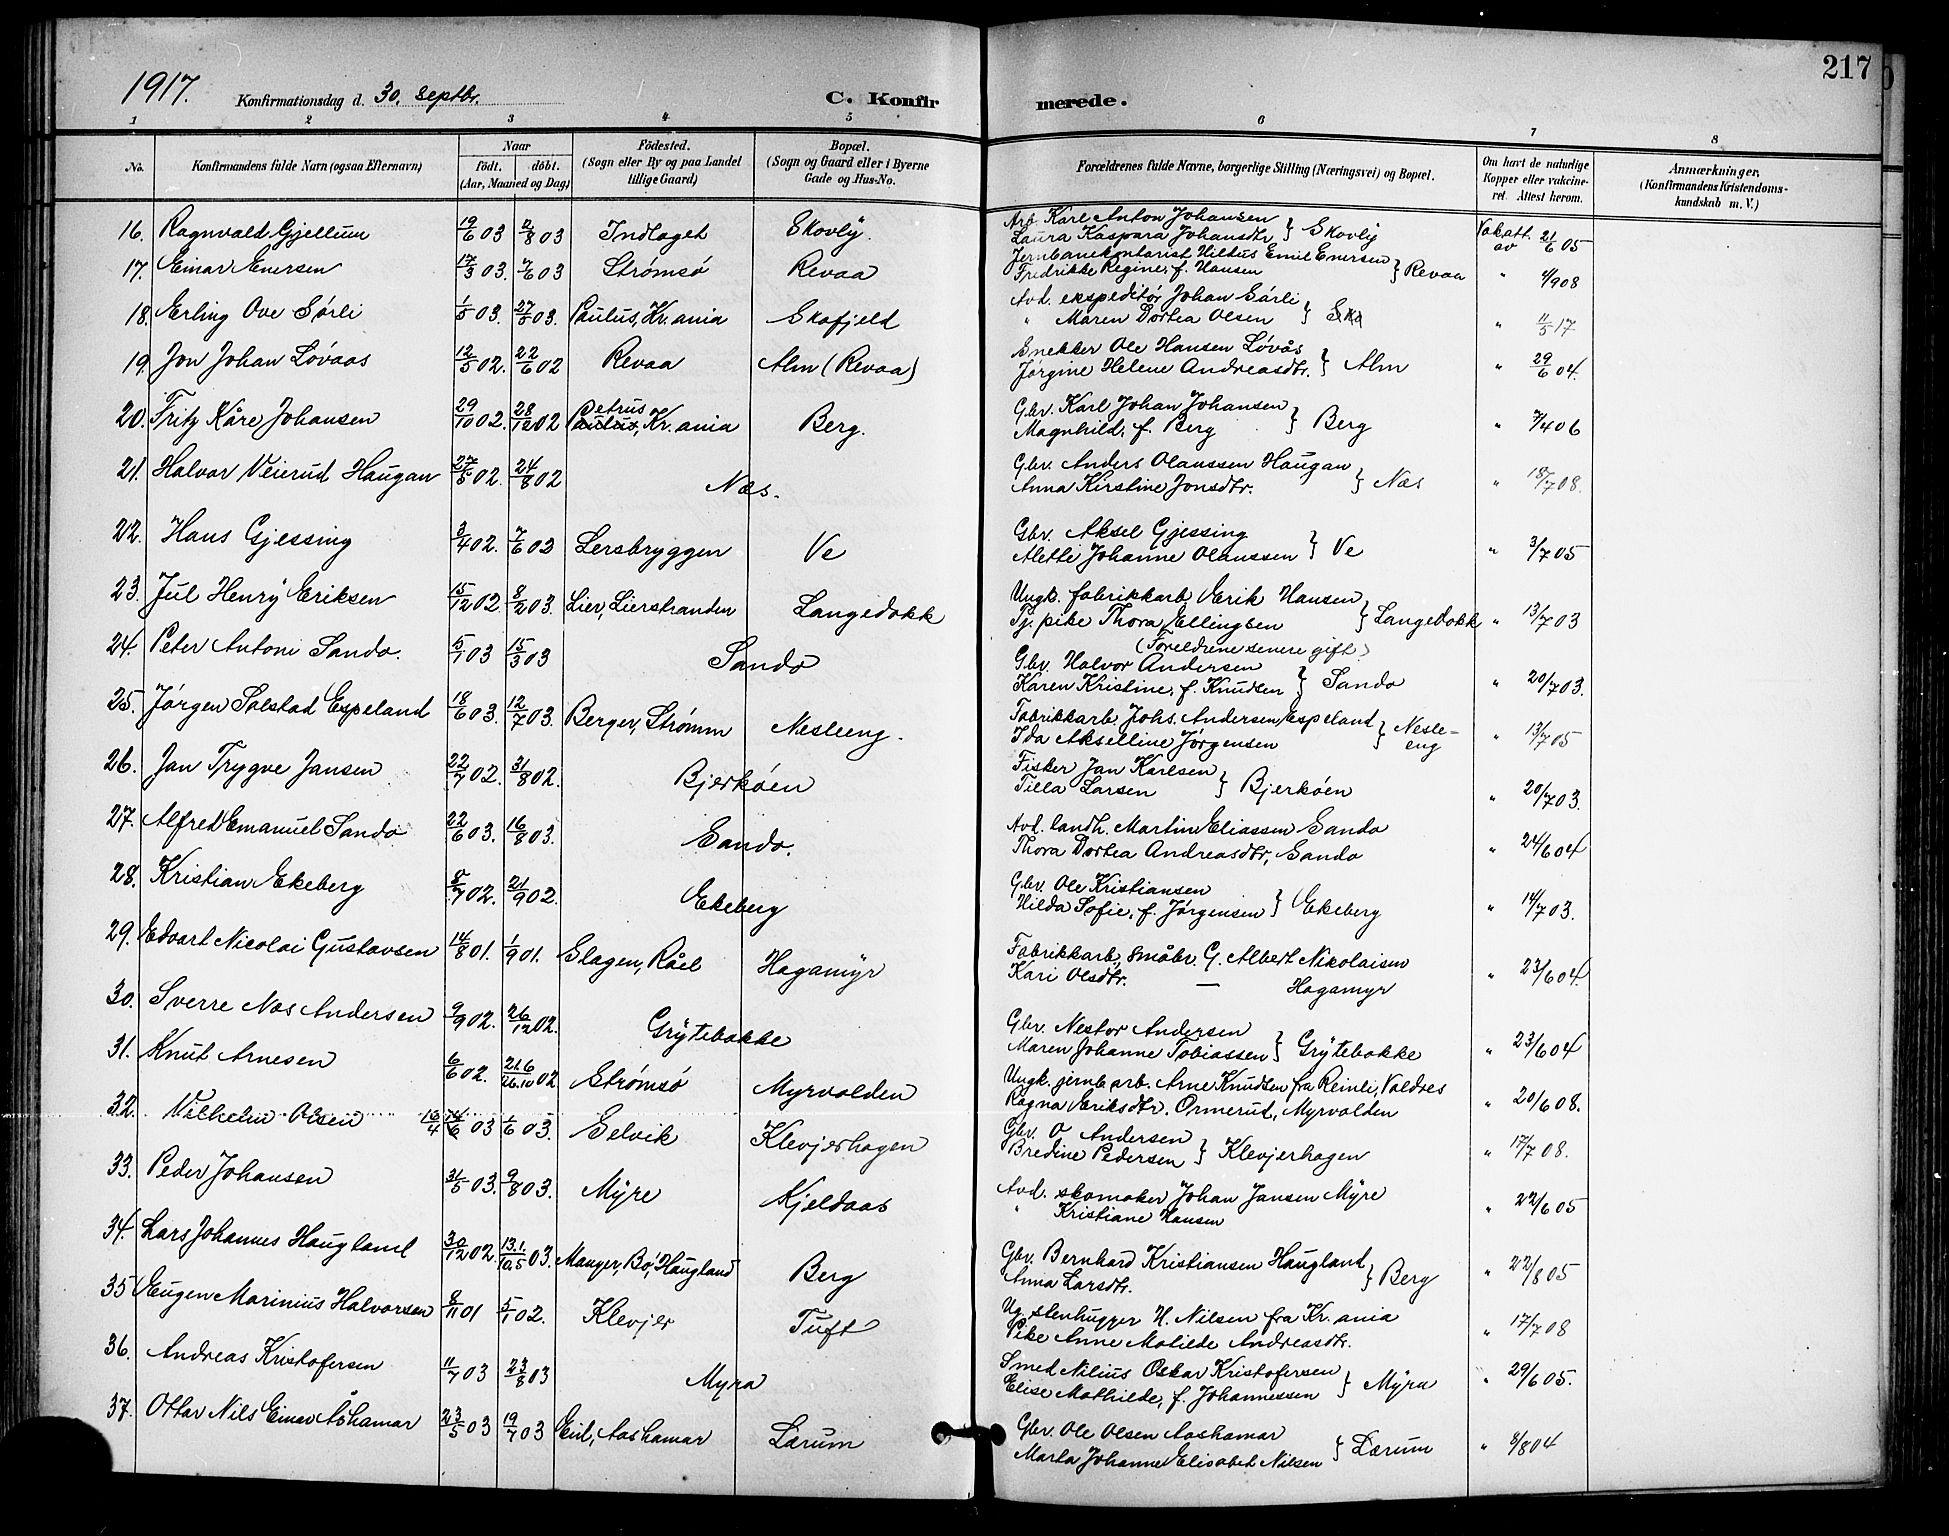 217
1917. Konfirmationsdag d. 30. septbr. C. Konfirmerede.
1 2 3 4 5 6 7 8
No. Konfirmandens fulde Navn (ogsaa Efternavn) Naar født. døbt. (Aar, Maaned og Dag) Födested. (Sogn eller By og paa Landet tillige Gaard) Bopæl. (Sogn og Gaard eller i Byerne Gade og Hus-No. Forældrenes fulde Navne, borgerlige Stilling (Næringsvei) og Bopæl. Om havt de naturlige Kopper eller vakcineret. Attest herom. Anmærkninger, (Konfirmandens Kristendomskundskab m. V.)
16. Ragnvald Gjellum 19/6 03 2/8 03 Indlaget Skovly. Arb. Karl Anton Johansen Laura Kaspara Johansdtr } Skovly Vakatt. av 21/6 05
17. Einar Enersen 17/3 03. 7/6 03 Strømsø Revaa Jernbanekontorist Hildus Emil Enersen Fredrikke Regine, f. Hansen } Revaa " 4/9 08
18. Erling Ove Sørli 1/5 03. 27/5 03. Paulus, Kr.ania Skafjeld Avd. ekspeditør Johan Sørli " Maren Dortea Olsen } " 11/5 17
19. Jon Johan Løvaas 12/5 02. 22/6 02 Revaa Alm (Revaa) Snekker Ole Hansen Løvås Jørgine Helene Andreasdtr. } Alm " 29/6 04.
20. Fritz Kåre Johansen 29/10 02. 28/12 02 Petrus Paulus, Kr.ania Berg. Gbr. Karl Johan Johansen Magnhild, f. Berg } Berg " 7/4 06
21. Halvor Veierud Haugan 27/5 02. 24/8 02 Næs. Gbr. Anders Olaussen Haugan Anna Kirstine Jonsdtr. } Næs " 18/7 08.
22. Hans Gjessing 3/4 02. 7/6 02 Lersbryggen Ve Gbr. Aksel Gjessing Alette Johanne Olaussen } Ve " 3/7 05
23. Jul Henry Eriksen 15/12 02. 8/2 03. Lier, Lierstranden Langedokk Ungk. fabrikkarb. Erik Hansen Tj. pike Thora Ellingsen } Langedokk (Foreldrene senere gift) " 13/7 03
24. Peter Antoni Sando. 5/1 03 15/3 03 Sandø Gbr. Halvor Andersen Karen Kristine, f. Knudsen } Sandø " 20/7 03.
25. Jørgen Solstad Espeland 18/6 03. 12/7 03. Berger, Strømm Nesleeng. Fabrikkarb. Johs. Andersen Espeland Ida Akselline Jørgensen } Nesleeng " 13/7 05
26. Jan Trygve Jansen 22/7 02. 31/8 02. Bjerkøen Fisker Jan Karlsen Tilla Larsen } Bjerkøen " 20/7 03.
27. Alfred Emanuel Sandø 22/6 03. 16/8 03. Sandø. Avd. landh. Martin Eliassen Sandø Thora Dortea Andreasdtr, Sandø " 24/6 04
28. Kristian Ekeberg 8/7 02. 21/9 02. Ekeberg Gbr. Ole Kristiansen Hilda Sofie, f. Jørgensen } Ekeberg " 14/7 03.
29. Edvart Nicolai Gustavsen 14/8 01. 1/9 01. Slagen, Råel Hagamyr Fabrikkarb., småbr. G. Albert Nikolaisen Kari Olsdtr. — Hagamyr " 23/6 04.
30. Sverre Næs Andersen 9/9 02. 26/12 02. Grytebakke Gbr. Nestor Andersen Maren Johanne Tobiassen } Grytebakke " 23/6 04
31. Knut Arnesen 6/6 02. 21.6/26.10 02 Strømsø Myrvolden Ungk. jernb. arb. Arne Knudsen fra Reinli, Valdres Ragna Eriksdtr. Ormerud, Myrvolden " 20/6 08.
32. Vilhelm Olsen 16/4 14/6 03 1/6 03. Selvik Klevjerhagen Gbr. O Andersen Bredine Pedersen } Klevjerhagen " 17/7 08.
33. Peder Johansen 31/5 03. 9/8 03. Myre Kjeldaas Avd. skomaker Johan Jansen Myre " Kristiane Hansen " 22/6 05
34. Lars Johannes Haugland 30/12 02. 13.1./10.5 03. Manger, Bø, Haugland Berg Gbr. Bernhard Kristiansen Haugland Anna Larsdtr. } Berg " 22/8 05
35 Eugen Marinius Halvorsen 8/11 01 5/1 02. Klevjer Tuft Ug. stenhugger H. Nilsen fra Kr.ania Pike Anne Matilde Andreasdtr. " 17/7 08
36. Andreas Kristofersen 11/7 03 23/8 03 Myra Smed Nilius Oskar Kristofersen Elise Mathilde, f. Johannessen } Myra " 29/6 05.
37. Ottar Nils Einar Åshamar 23/5 03 19/7 03 Eid, Aashamar Lærum Gbr. Ole Olsen Aashamar Marta Johanne Elisabet Nilsen } Lærum " 8/8 04